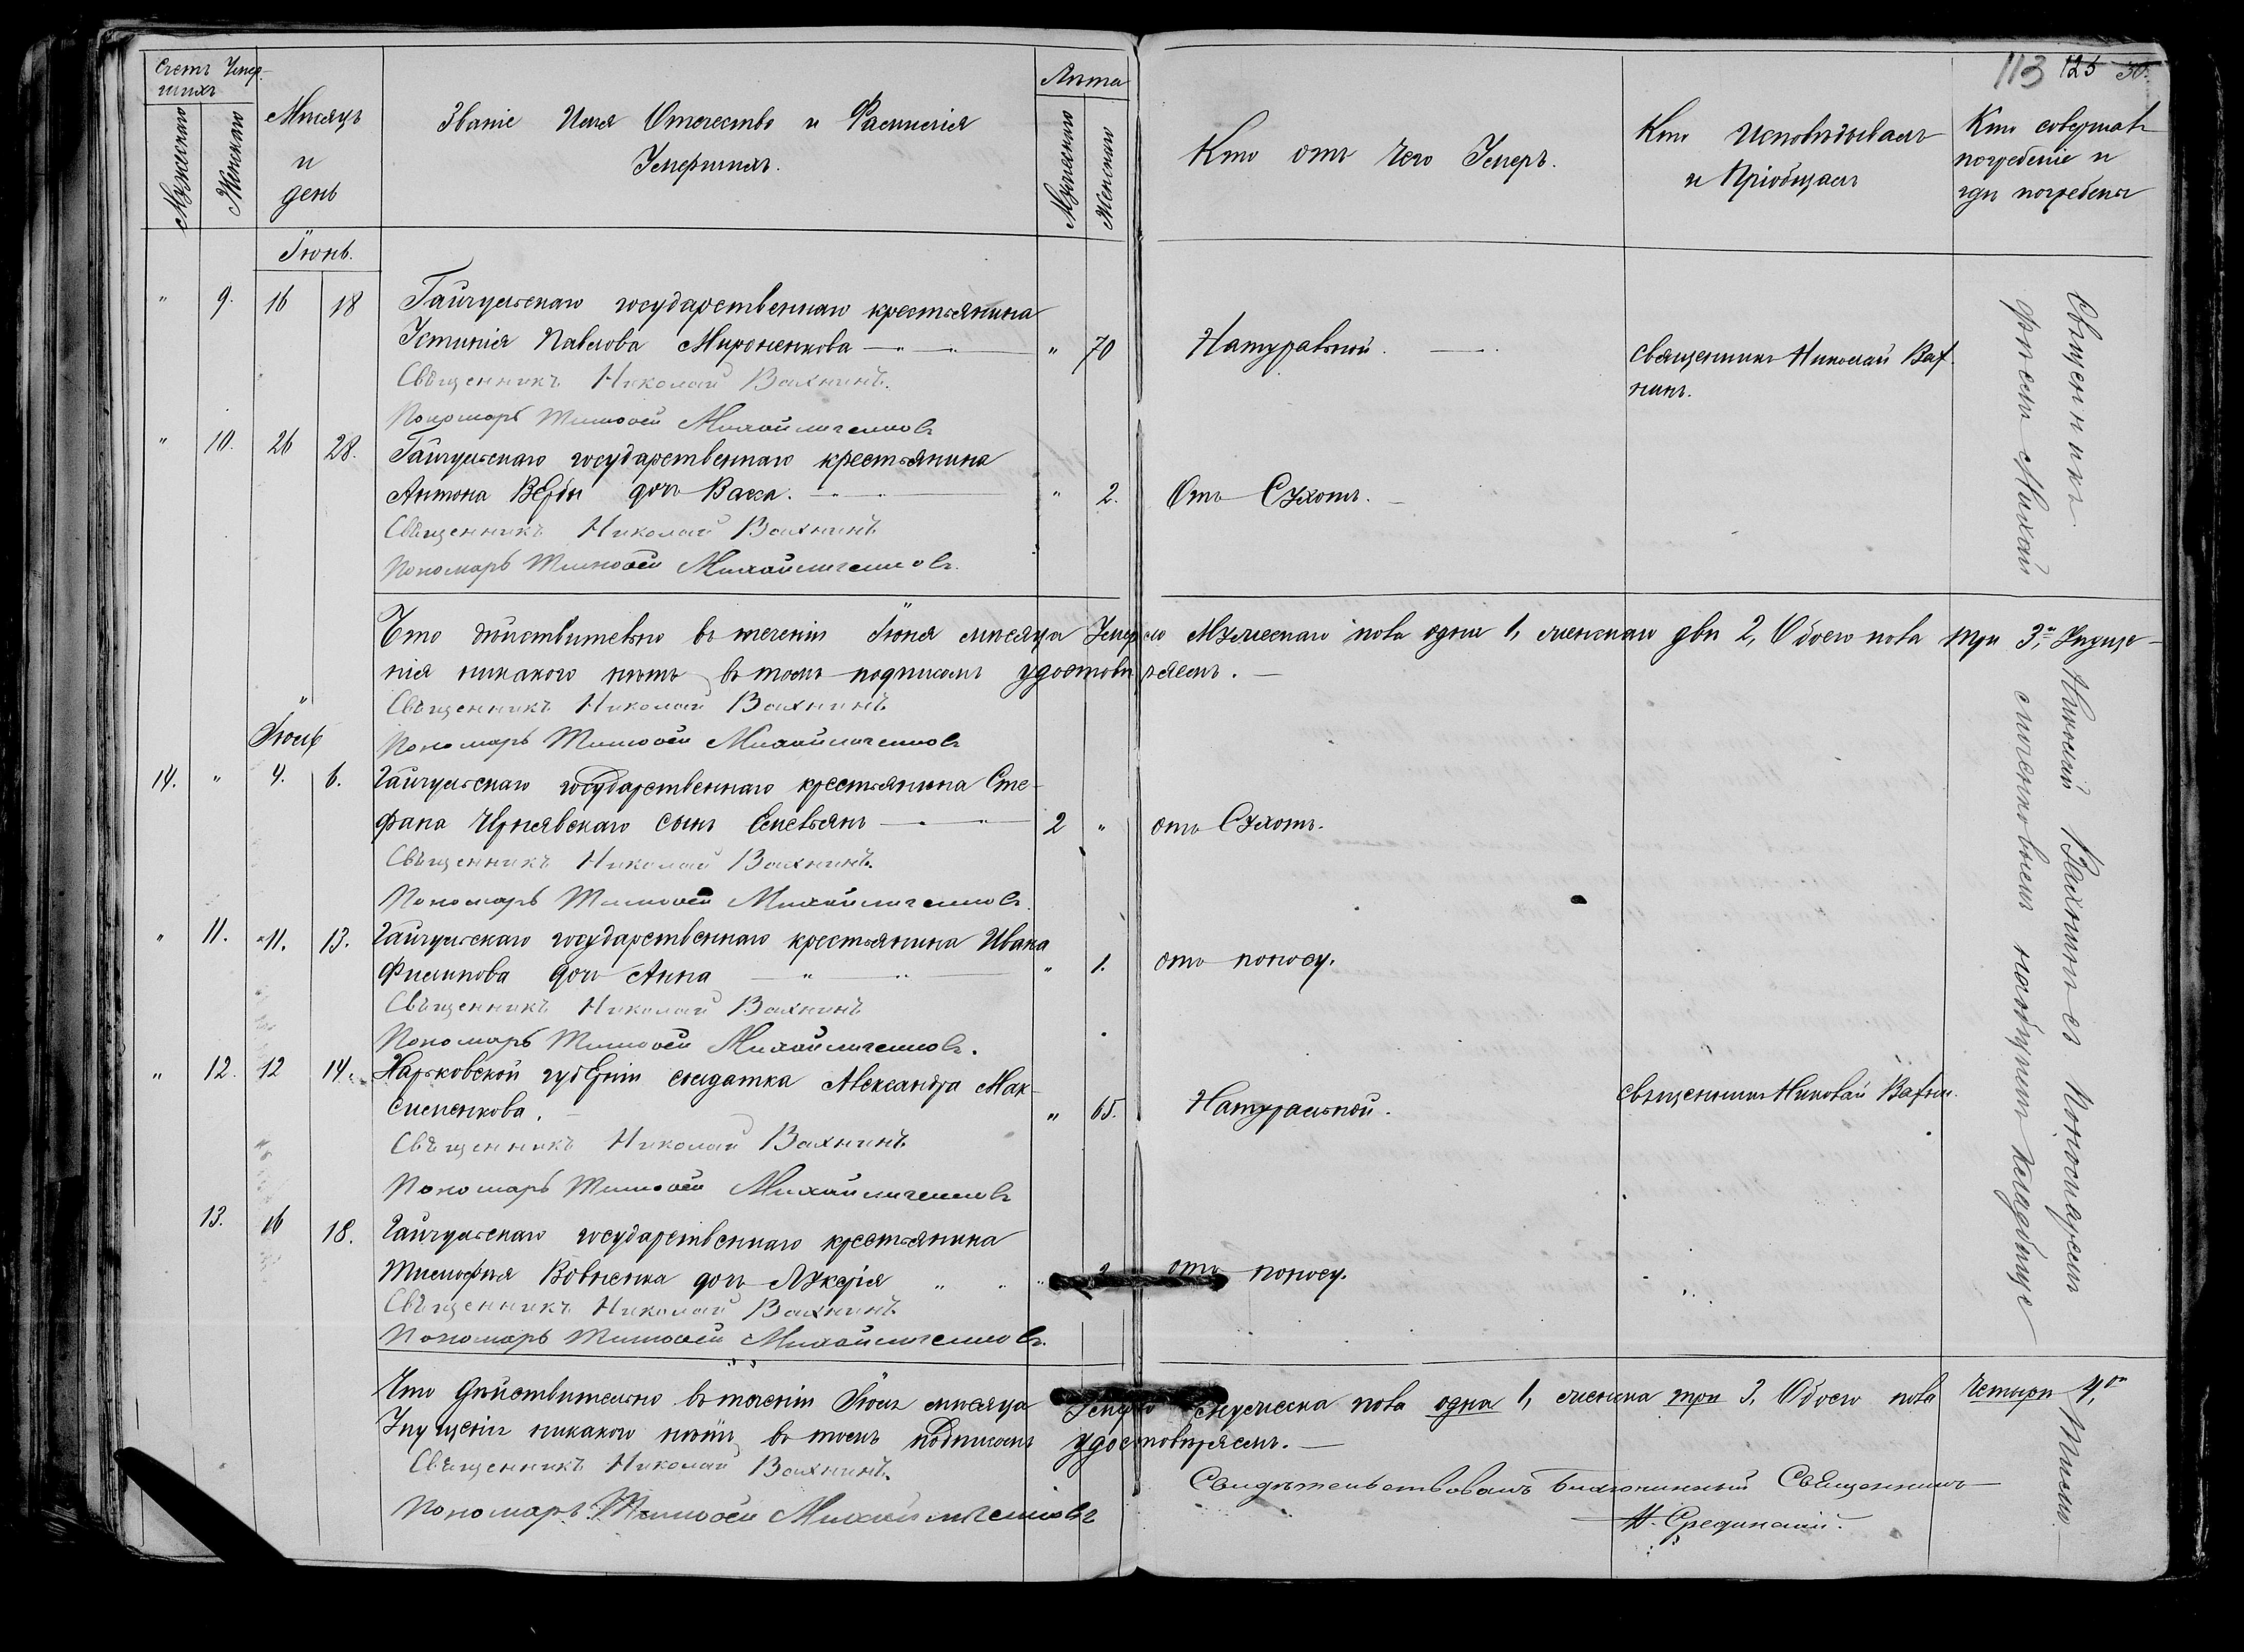 113 125 30.
Счетъ Умер-
шихъ
Мужескаго
Женскаго
Мѣсяцъ
и
день
Званіе Имя Отечество и Фамилія
Умершихъ.
Лѣта
Мужескаго
Женскаго
Кто отъ чего Умеръ.
Кто Исповѣдывалъ
и Пріобщалъ
Кто совершалъ
погребеніе и
гдѣ погребены
Іюнь.
" 9. 16 18 Гайчульскаго государственнаго крестьянина
Устинія Павлова Мироненкова " 70 Натуральной. священникъ Николай Вах-
нинъ.
Священникъ Николай Вахнинъ.
Пономарь Тимоѳей Михайличенковъ
" 10. 26 28. Гайчульскаго государственнаго крестьянина
Антона Вербы дочь Васса. " 2. Отъ Сухотъ.
Священникъ Николай Вахнинъ
Пономарь Тимоѳей Михайличенковъ.
Что дѣйствительно въ теченіи Іюня мѣсяца Умерло Мужескаго пола одинъ 1, женскаго двѣ 2, Обоего пола три 3, Упуще-
нія никакого нѣтъ въ томъ подписомъ удостовѣряемъ.
Священникъ Николай Вахнинъ
Пономарь Тимоѳей Михайличенковъ
Іюль
14. " 4. 6. Гайчульскаго государственнаго крестьянина Сте-
фана Чернявскаго сынъ Емельянъ 2 " отъ Сухотъ.
Священникъ Николай Вахнинъ.
Пономарь Тимоѳей Михайличенковъ.
" 11. 11. 13. Гайчульскаго государственнаго крестьянина Ивана
Филипова дочь Анна " 1. отъ поносу.
Священникъ Николай Вахнинъ
Пономарь Тимоѳей Михайличенковъ.
" 12. 12 14. Харьковской губерніи солдатка Александра Мак-
сименкова. " 65. Натуральной. священникъ Николай Вахнин.
Священникъ Николай Вахнинъ
Пономарь Тимоѳей Михайличенковъ
13. 16 18. Гайчульскаго государственнаго крестьянина
Тимофѣя Вовченка дочь Лукерія " отъ поносу.
Священникъ Николай Вахнинъ
Пономарь Тимоѳей Михайличенковъ.
Что дѣйствительно въ теченіи Іюля мѣсяца Умерло мужеска пола одна 1, женска три 3, Обоего пола Четыри 4,
Упущенія никакого нѣтъ въ томъ подписомъ удостовѣряемъ.
Священникъ Николай Вахнинъ.
Пономарь Тимоѳей Михайличенковъ
Свидѣтельствовалъ Благочинный Священникъ
Н. Срединскій.
Священникъ Николай Вахнинъ съ Пономаремъ Тимо-
фѣемъ Михайличенковымъ на общемъ кладбище